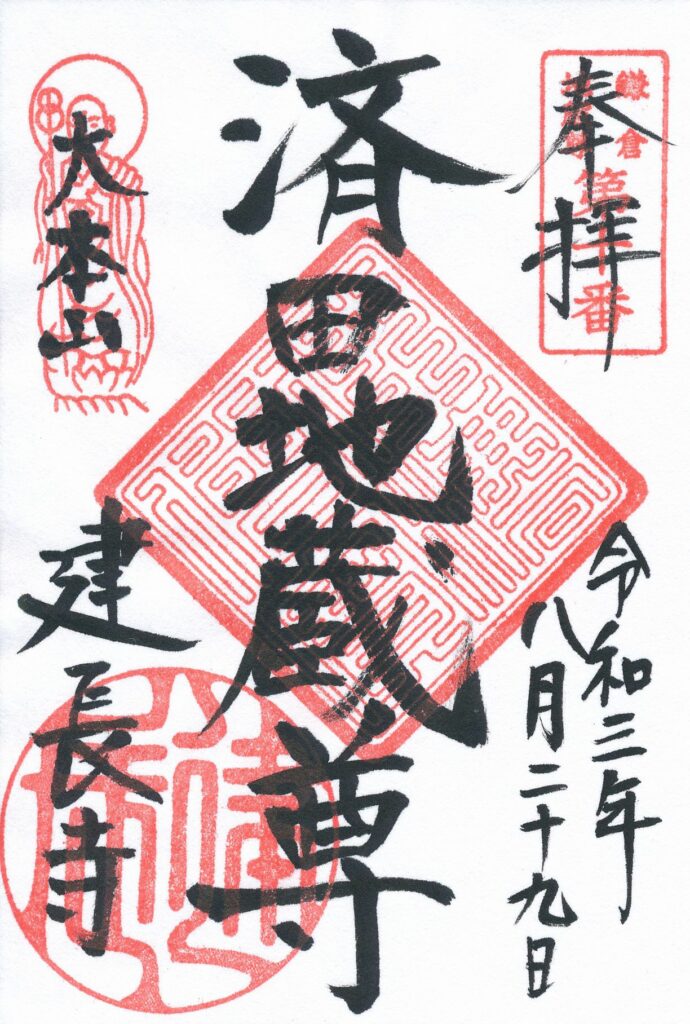 奉拝
鎌倉
第十番
令和三年
八月二十九日
済田地蔵尊
大本山
建長寺